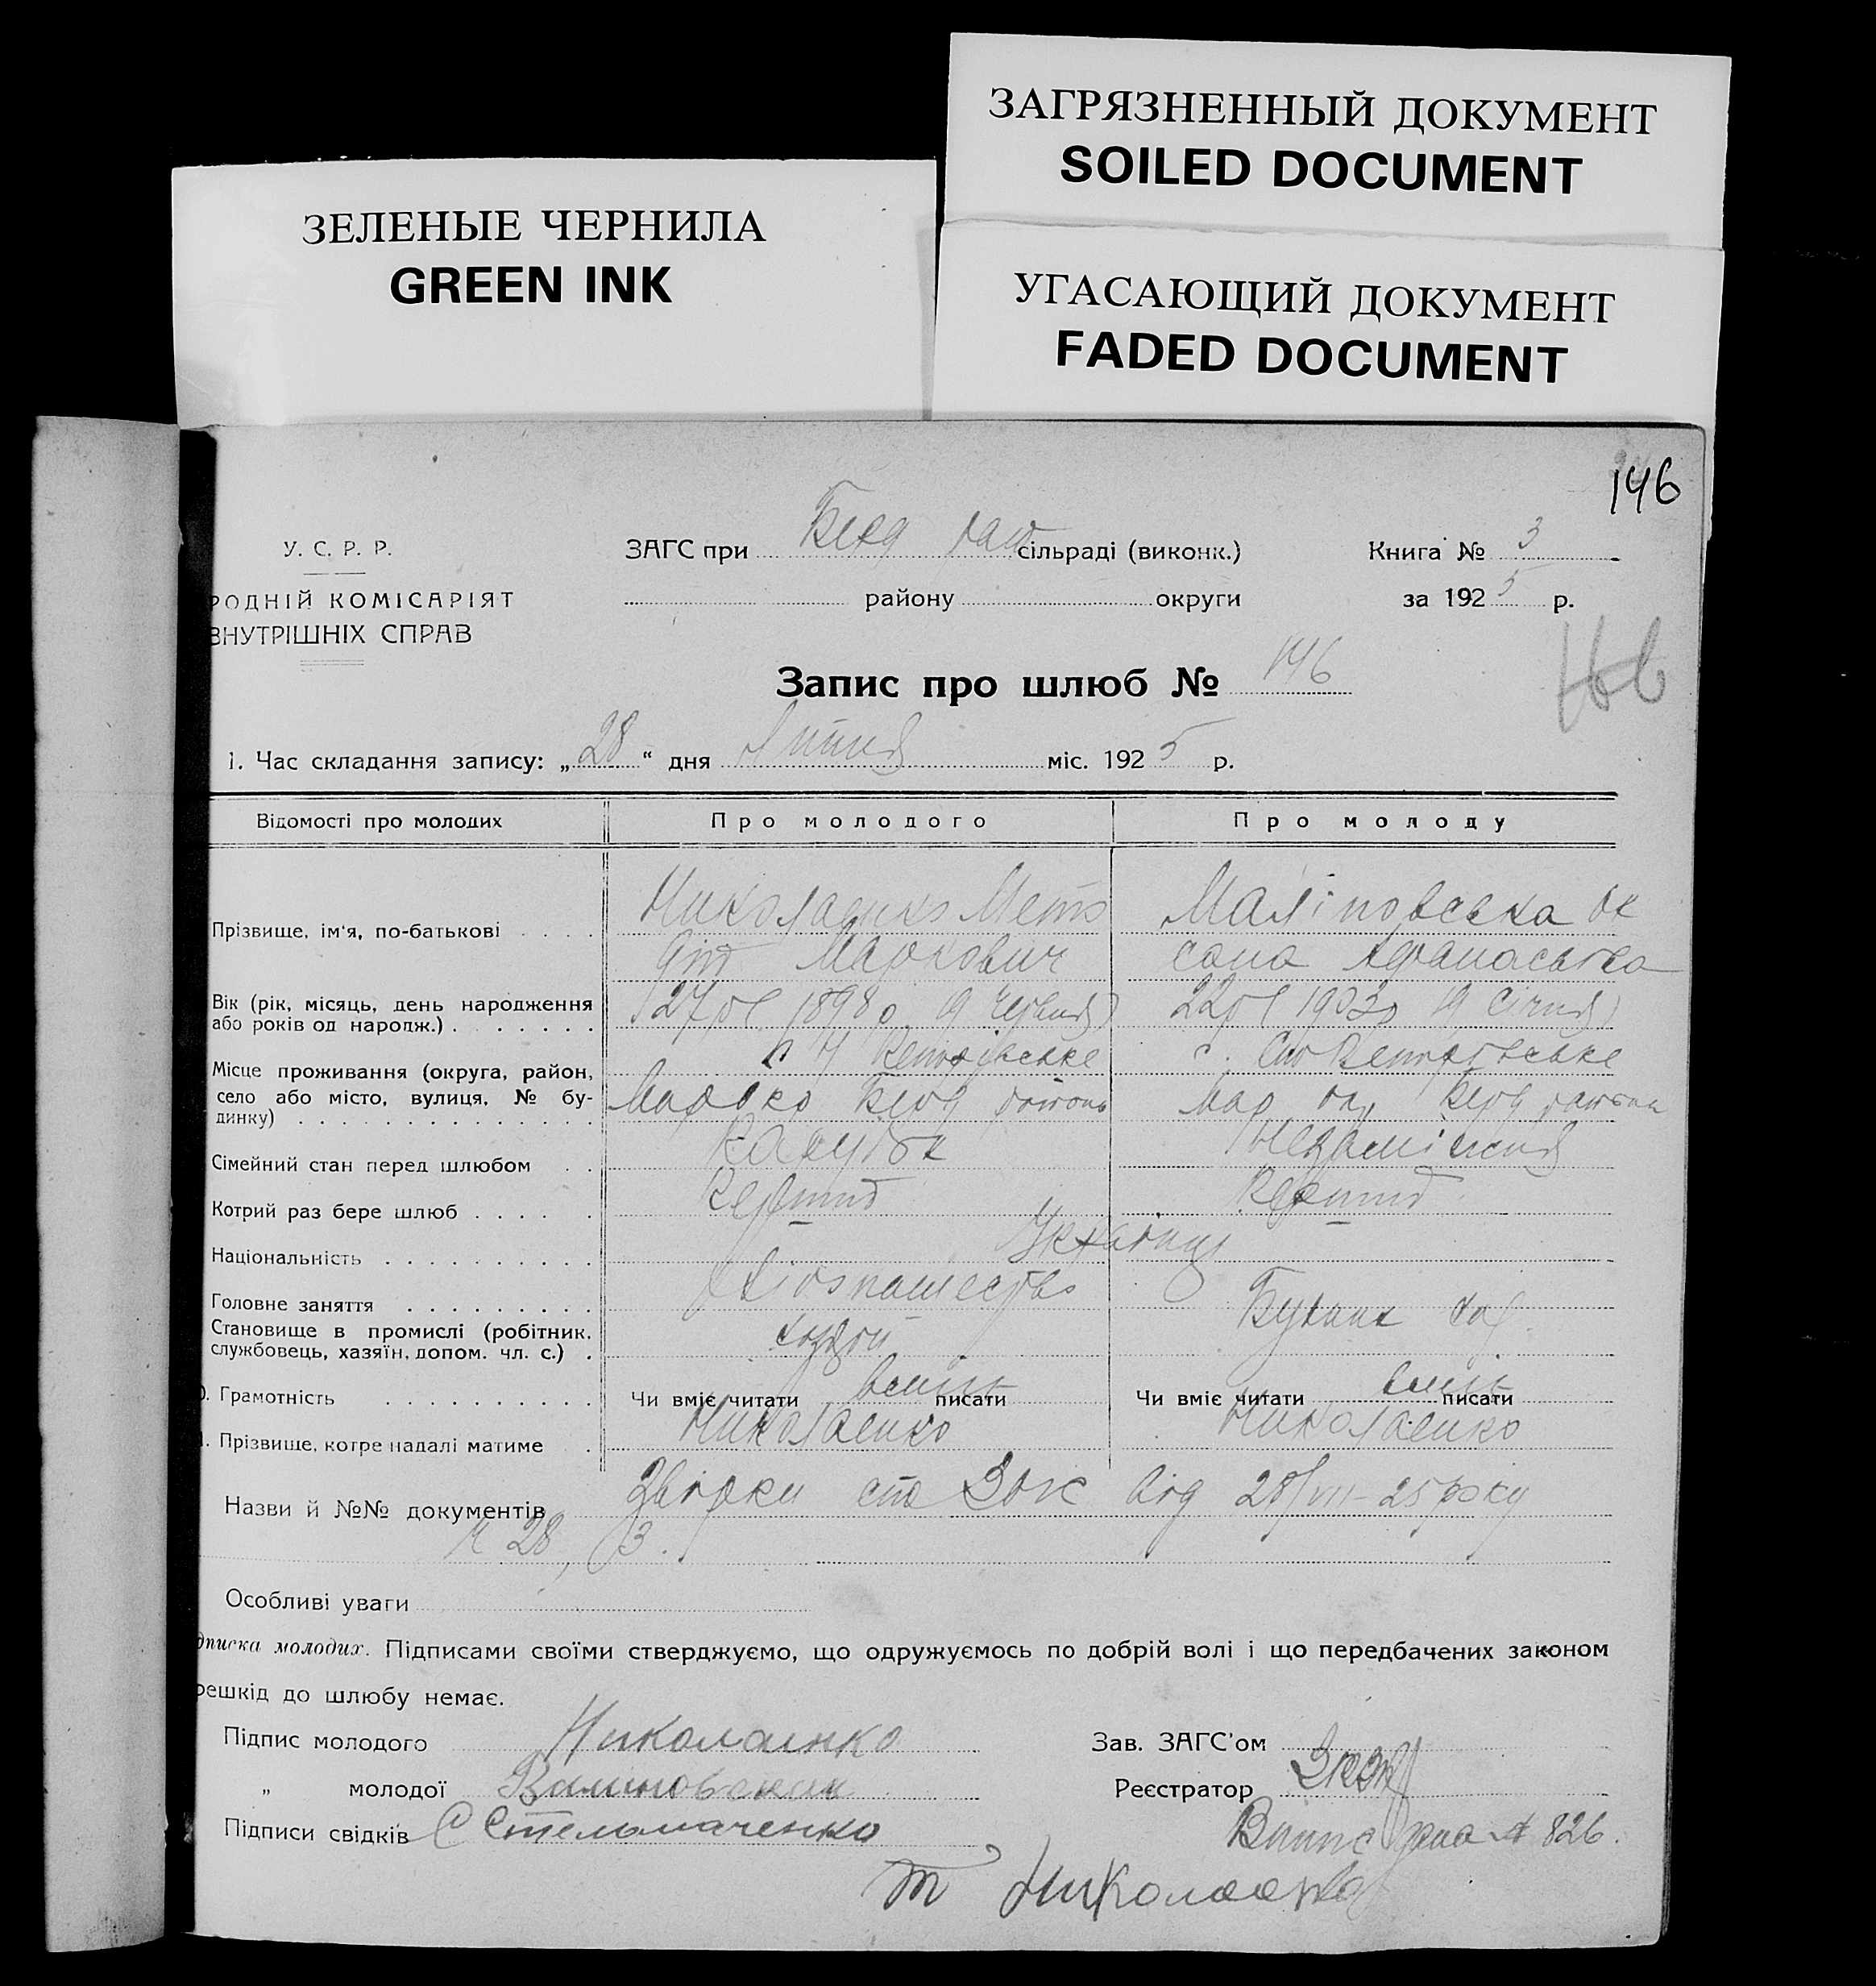 ЗАГРЯЗНЕННЫЙ ДОКУМЕНТ
SOILED DOCUMENT
ЗЕЛЕНЫЕ ЧЕРНИЛА
GREEN INK
УГАСАЮЩИЙ ДОКУМЕНТ
FADED DOCUMENT
146
У. С. Р. Р.
РОДНІЙ КОМІСАРІЯТ
ВНУТРІШНІХ СПРАВ
ЗАГС при Берд рай сільраді (виконк.)
району округи
Книга № 3
за 192 5 р.
Запис про шлюб № 146
1. Час складання запису: „ 28 “ дня Липня міс. 192 5 р.
Відомості про молодих Про молодого Про молоду
Прізвище, ім'я, по-батькові Николаенко Мето Маліновська Ок
дій Маркович сана Афанасьевна
Вік (рік, місяць, день народження або років од народж.) 27 1898 р 9 червня 22 1903 р 9 Січня
Місце проживання (округа, район, село або місто, вулиця, № будинку) с. Н Петрівське с. Петровське
Мар окр Берд району Мар окр Берд району
Сімейний стан перед шлюбом Парубок Незаміжня
Котрий раз бере шлюб Перший Перший
Національність Українці
Головне заняття Хліборобство
Становище в промислі (робітник, службовець, хазяїн, допом. чл. с.)
0. Грамотність Чи вміє читати вміє писати Чи вміє читати вміє писати
1. Прізвище, котре надалі матиме Николаенко Николаенко
Назви й №№ документів від 28/VII-25 року
№ 28, 3.
Особливі уваги
дписка молодих. Підписами своїми стверджуємо, що одружуємось по добрій волі і що передбачених законом
решкід до шлюбу немає.
Підпис молодого Николаенко
Зав. ЗАГС'ом
„ молодої
Реєстратор
Підписи свідків С Стельмаченко
№ 826.